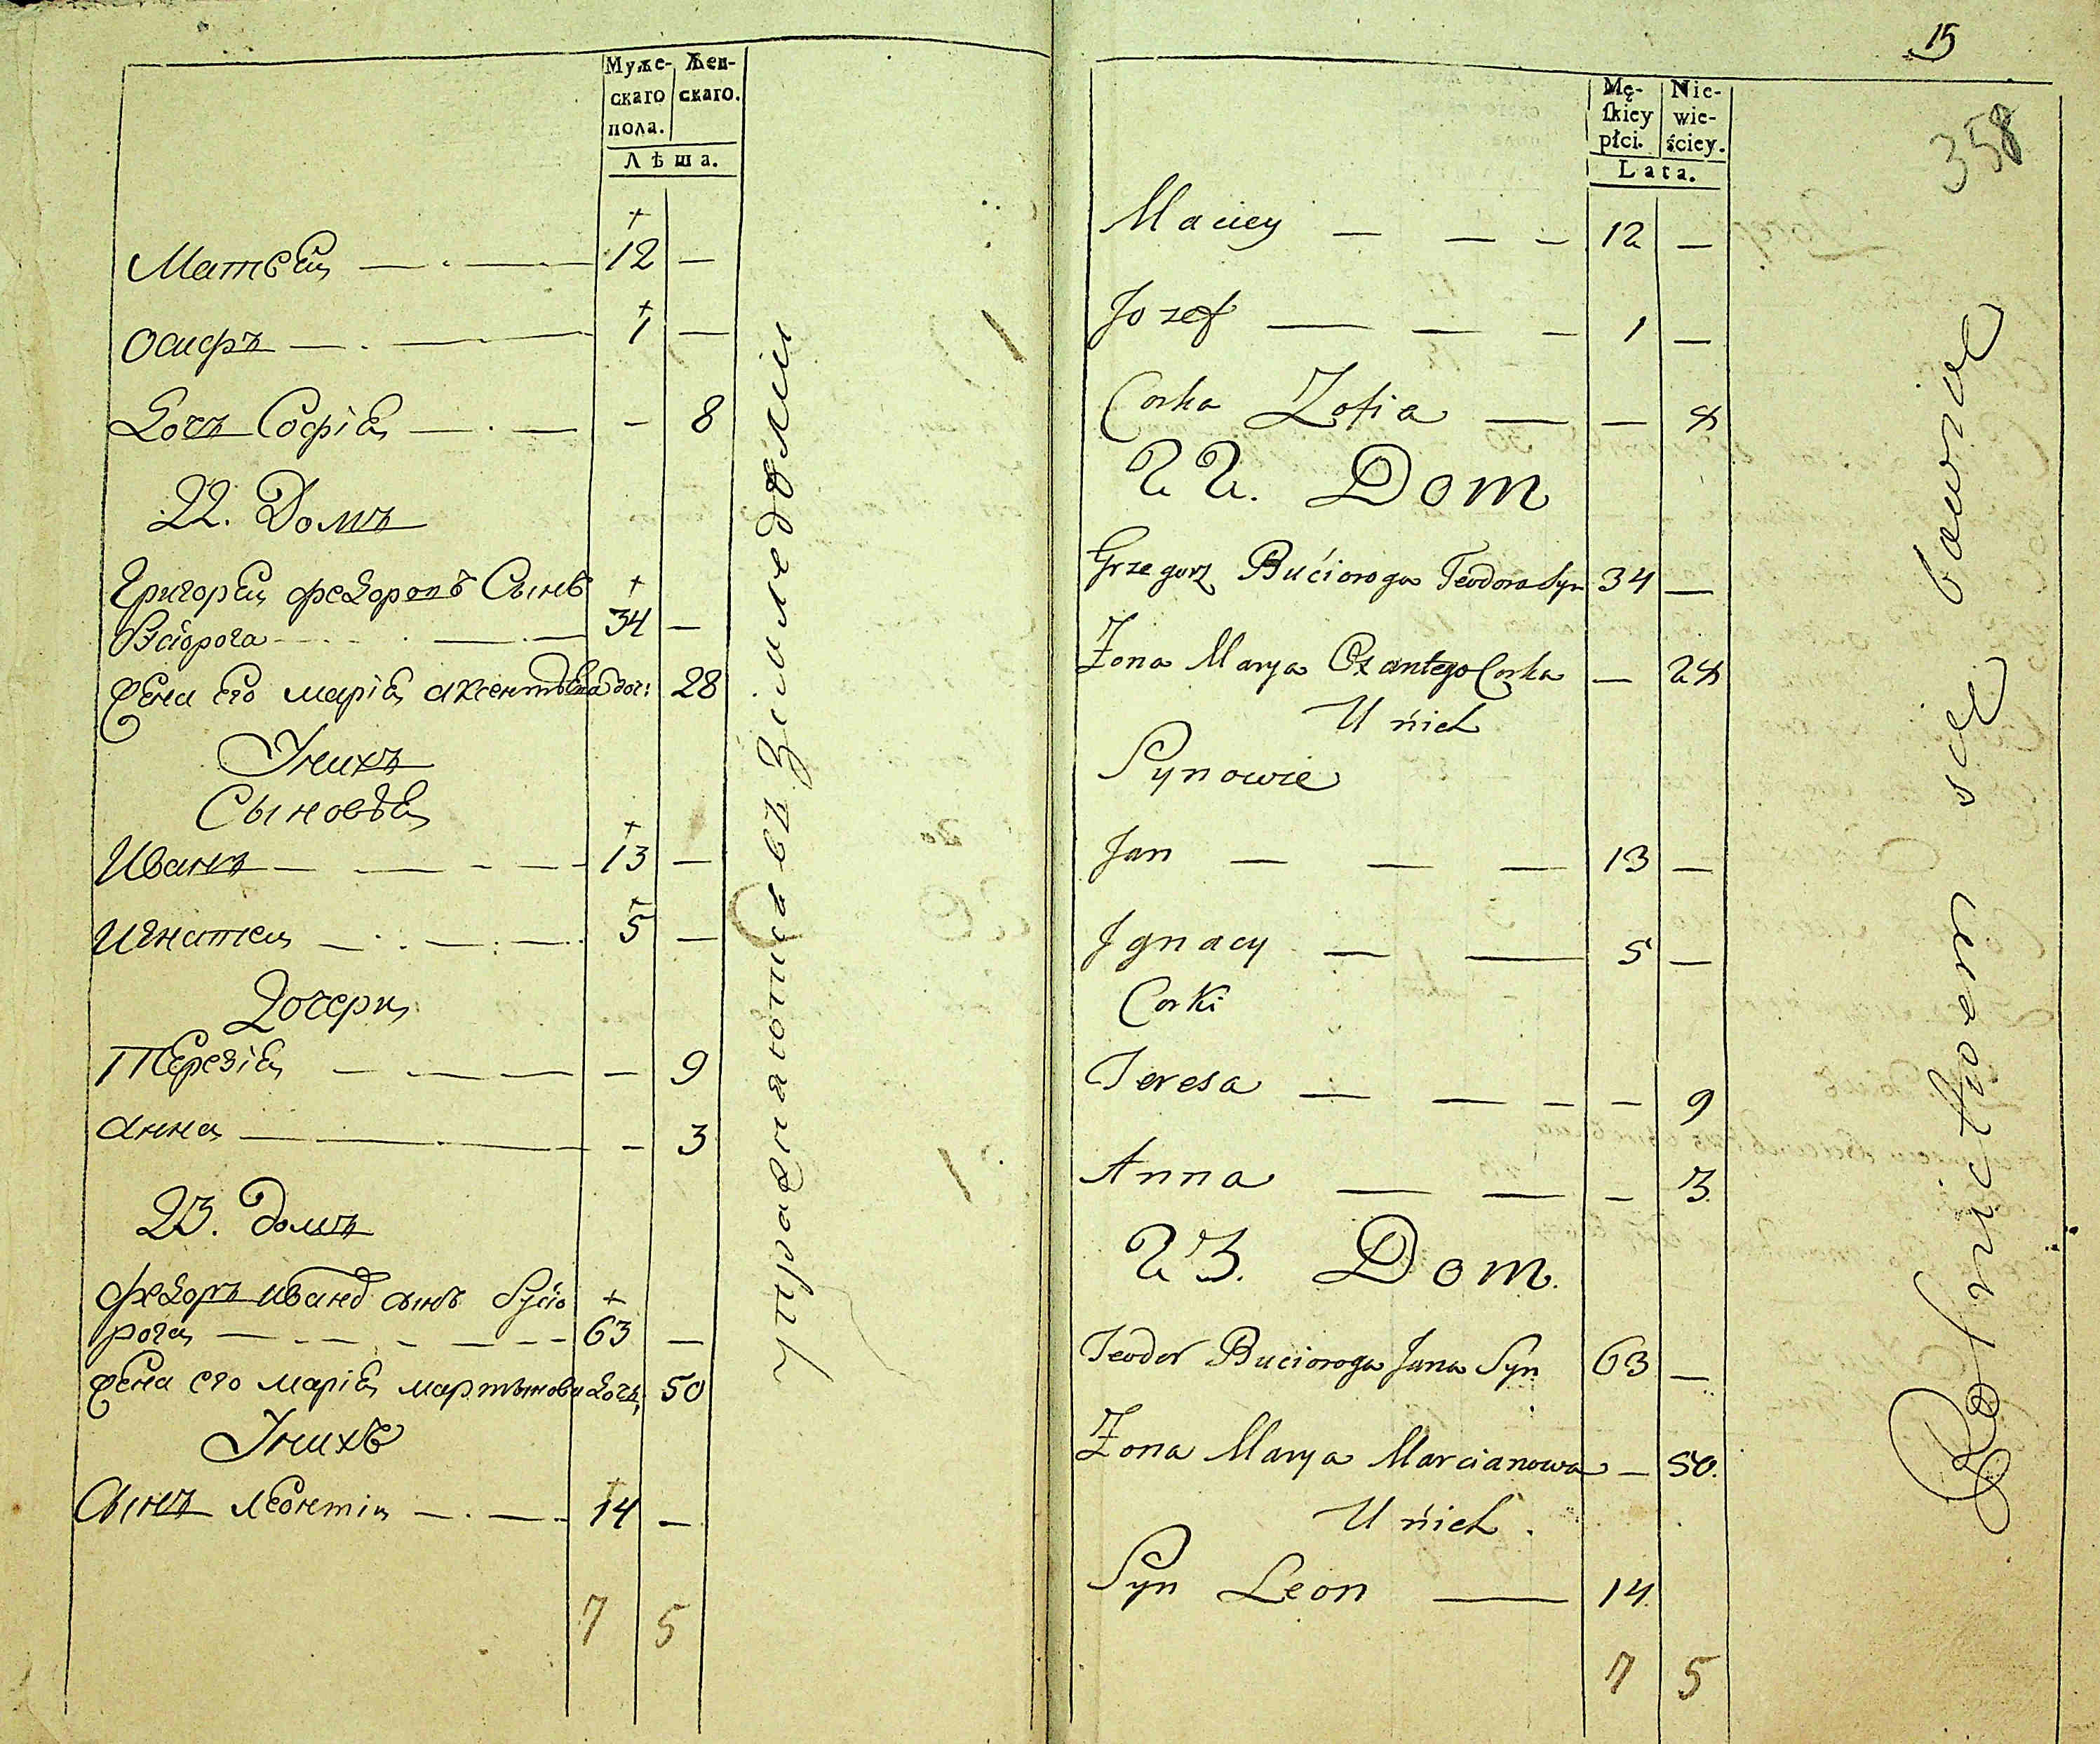 Муже-
скаго
пола.
Жен-
скаго.
Лѣта.
Матвей — 12 —
Осифъ — 1 —
Дочь Софія — — 8
22. Домъ
Григорей Федоровъ Сынъ
Бусіорога — 34 —
Жена его Марія Аксентьева доч: 28
У нихъ
Сыновья
Иванъ — 13 —
Игнатей — 5 —
Дочери
Терезія — — 9
Анна — — 3
23. домъ
Федоръ Иванов сынъ Бусіо
рога — 63 —
Жена его Марія Мартинова дочь, 50
У нихъ
Сынъ Леонтій — 14 —
7 5
упражняются въ земледѣліи
15
358
Mę-
skiey
płci.
Nie-
wie-
ściey.
Lata.
Maciey — 12 —
Jozef — 1 —
Corka Zofia — — 8
22. Dom
Grzegorz Bućioroga Teodora Syn 34 —
Zona Marya Oxantego Corka — 28
U nich
Synowie
Jan — 13 —
Jgnacy — 5 —
Corki
Teresa — — 9
Anna — — 3.
23. Dom.
Teodor Bucioroga Jana Syn 63 —
Zona Marya Marcianowa — 50.
U nich.
Syn Leon — 14.
7 5
Rolnictwem się bawiąc